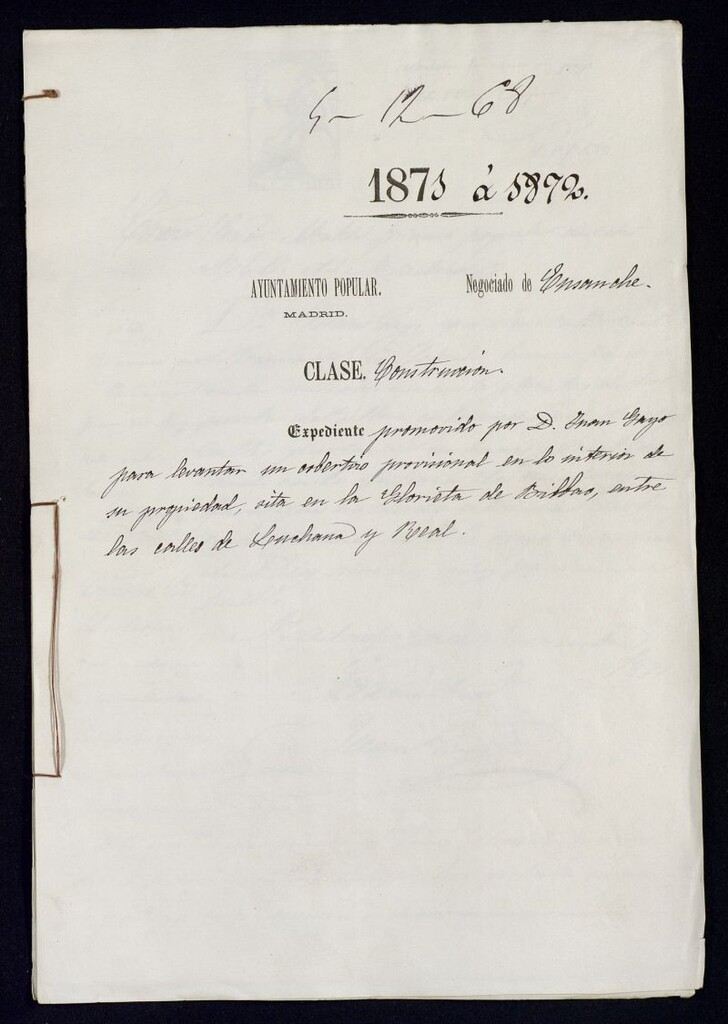 5-12-68
1871 á 1872.
AYUNTAMIENTO POPULAR. Negociado de Ensanche.
MADRID.
CLASE. Construccion.
Expediente promovido por D. Juan Gayo
para levantar un cobertizo provisional en lo interior de
su propiedad, sita en la Glorieta de Bilbao, entre
las calles de Luchana y Real.